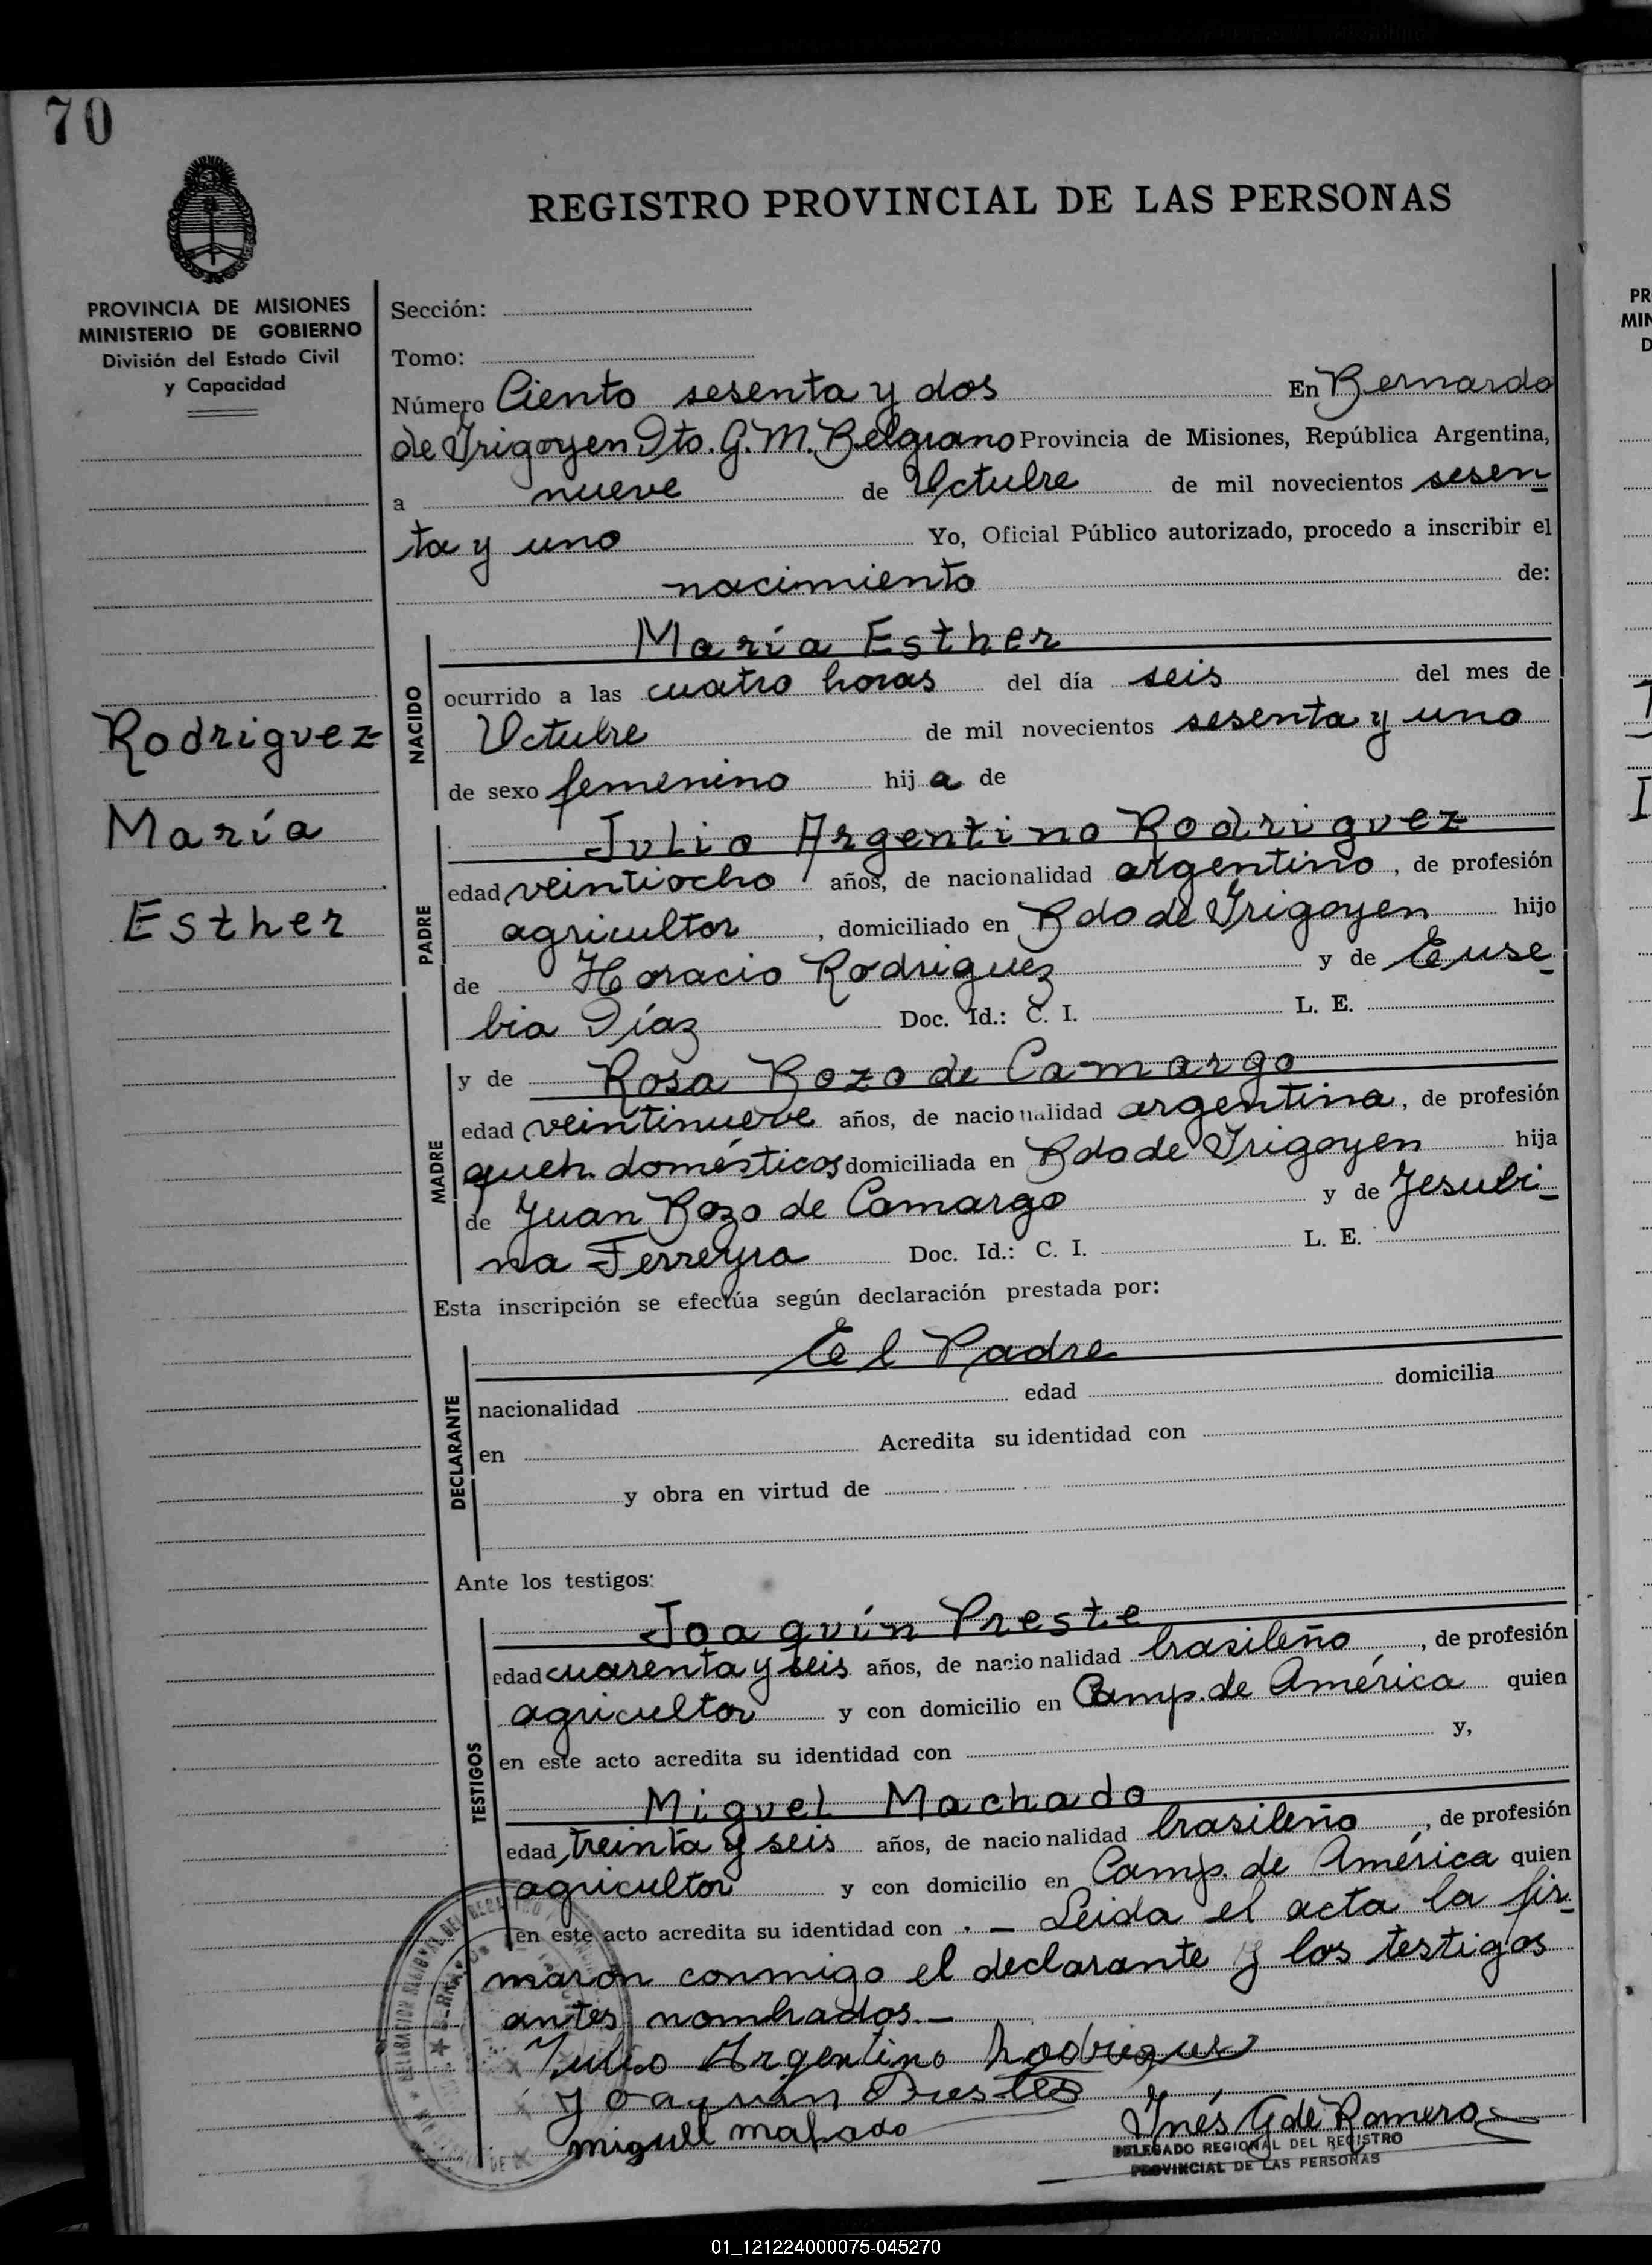 70
REGISTRO PROVINCIAL DE LAS PERSONAS
PROVINCIA DE MISIONES
MINISTERIO DE GOBIERNO
División del Estado Civil
y Capacidad
Rodriguez
María
Esther
Sección:
Tomo:
Número Ciento sesenta y dos En Bernardo
de Irigoyen Dto. G. M. Belgrano Provincia de Misiones, República Argentina,
a nueve de Octubre de mil novecientos sesen
ta y uno Yo, Oficial Público autorizado, procedo a inscribir el
nacimiento de:
NACIDO
María Esther
ocurrido a las cuatro horas del día seis del mes de
Octubre de mil novecientos sesenta y uno
de sexo femenino hija de
PADRE
Julio Argentino Rodriguez
edad veintiocho años, de nacionalidad argentino, de profesión
agricultor, domiciliado en Bdo de Irigoyen hijo
de Horacio Rodriguez y de Euse
bia Díaz Doc. Id.: C. I. L. E.
MADRE
y de Rosa Bozo de Camargo
edad veintinueve años, de nacionalidad argentina, de profesión
queh. domésticos domiciliada en Bdo de Irigoyen hija
de Juan Bozo de Camargo y de Jesubi-
na Ferreyra Doc. Id.: C. I. L. E.
Esta inscripción se efectúa según declaración prestada por:
DECLARANTE
El Padre
nacionalidad edad domicilia
en Acredita su identidad con
y obra en virtud de
Ante los testigos:
TESTIGOS
Joaquín Preste
edad cuarenta y seis años, de nacionalidad brasileño, de profesión
agricultor y con domicilio en Camp. de América quien
en este acto acredita su identidad con y,
Miguel Machado
edad treinta y seis años, de nacionalidad brasileño, de profesión
agricultor y con domicilio en Camp. de América quien
en este acto acredita su identidad con . - Leida el acta la fir-
maron conmigo el declarante y los testigos
antes nombrados.-
Julio Argentino Rodriguez
Joaquin Prestes
miguel mahado
Inés G de Romero
DELEGADO REGIONAL DEL REGISTRO
PROVINCIAL DE LAS PERSONAS
01_121224000075-045270